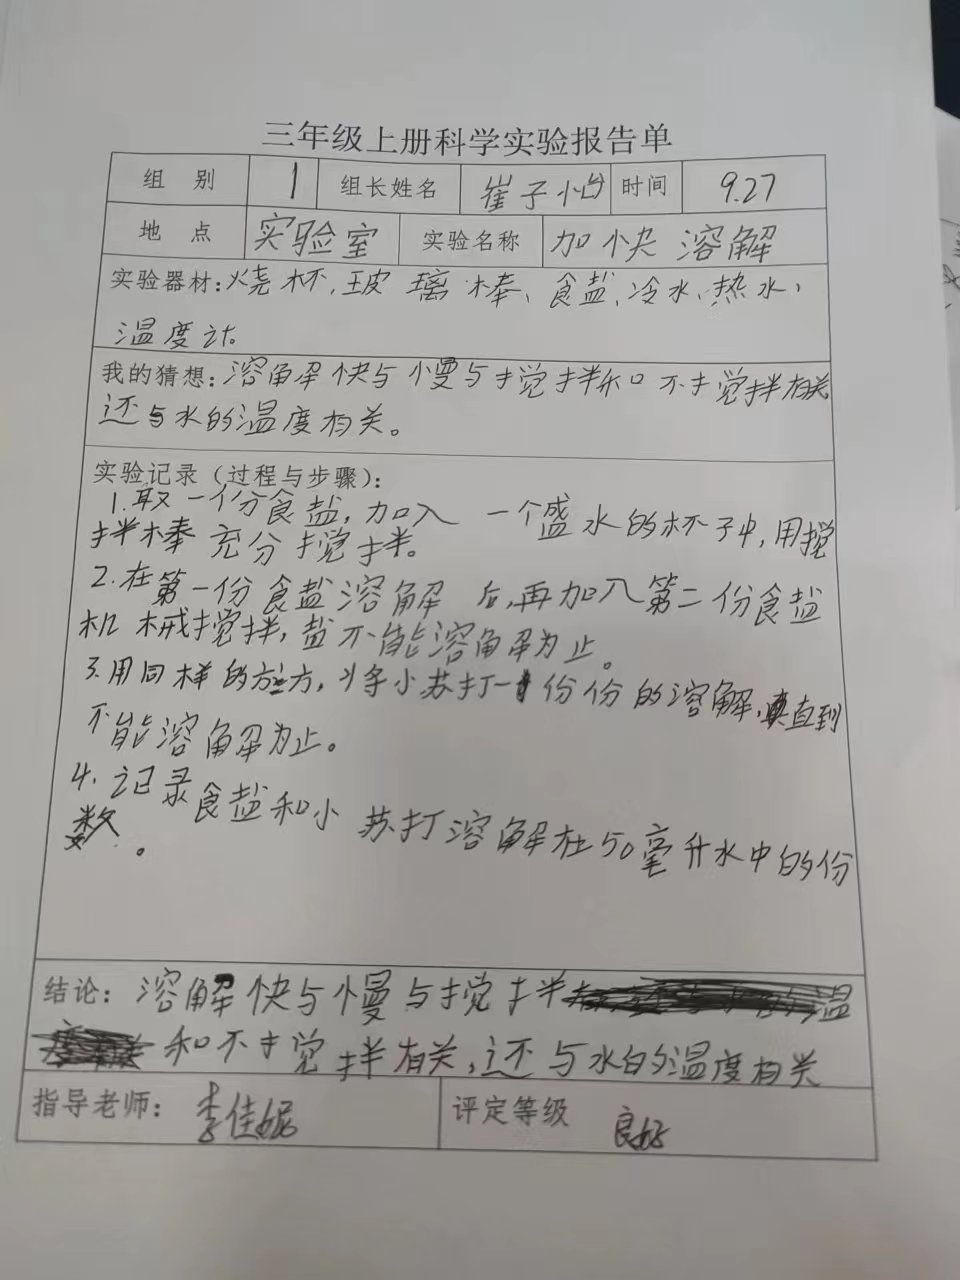 三年级上册科学实验报告单
组 别 1 组长姓名 崔子怡 时间 9.27
地 点 实验室 实验名称 加快溶解
实验器材：烧杯、玻璃棒、食盐、冷水、热水、
温度计。
我的猜想：溶解快与慢与搅拌和不搅拌有关
还与水的温度有关。
实验记录（过程与步骤）：
1.取一个份食盐，加入一个盛水的杯子中，用搅
拌棒充分搅拌。
2.在第一份食盐溶解后，再加入第二份食盐
机械搅拌，盐不能溶解为止。
3.用同样的方方，将小苏打一份份的溶解，直到
不能溶解为止。
4.记录食盐和小苏打溶解在50毫升水中的份
数。
结论：溶解快与慢与搅拌
和不搅拌有关，还与水的温度有关
指导老师：李佳妮 评定等级 良好